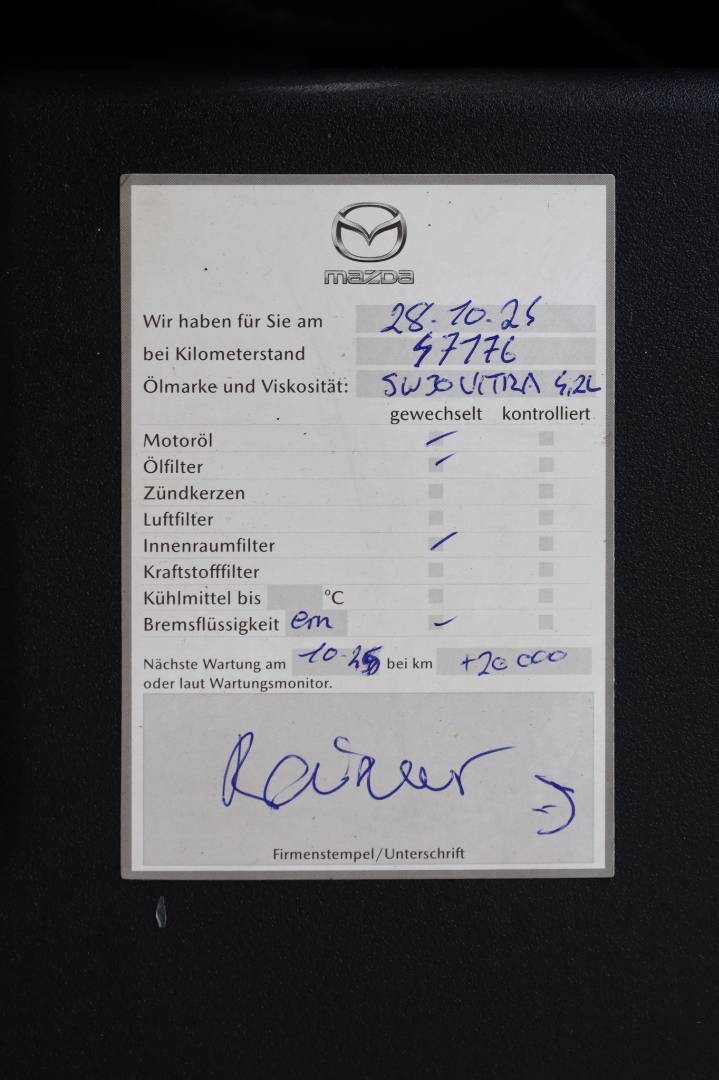 mazda
Wir haben für Sie am 28.10.25
bei Kilometerstand 47176
Ölmarke und Viskosität: 5W30 ULTRA 4,2L
gewechselt kontrolliert
Motoröl
Ölfilter
Zündkerzen
Luftfilter
Innenraumfilter
Kraftstofffilter
Kühlmittel bis °C
Bremsflüssigkeit ern
Nächste Wartung am 10. bei km +20000
oder laut Wartungsmonitor.
Rainer :-)
Firmenstempel/Unterschrift